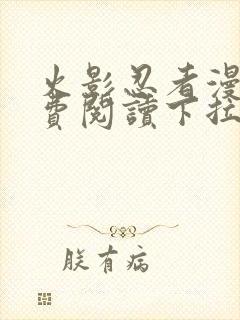 火影忍者漫
費閱讀下拉
朕有病